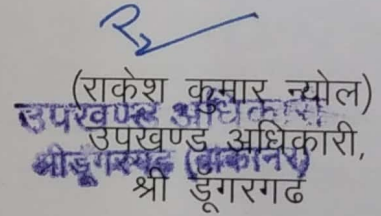 (राकेश कुमार न्योल)
उपखण्ड अधिकारी
उपखण्ड अधिकारी,
श्रीडूंगरगढ (बीकानेर)
श्री डूँगरगढ